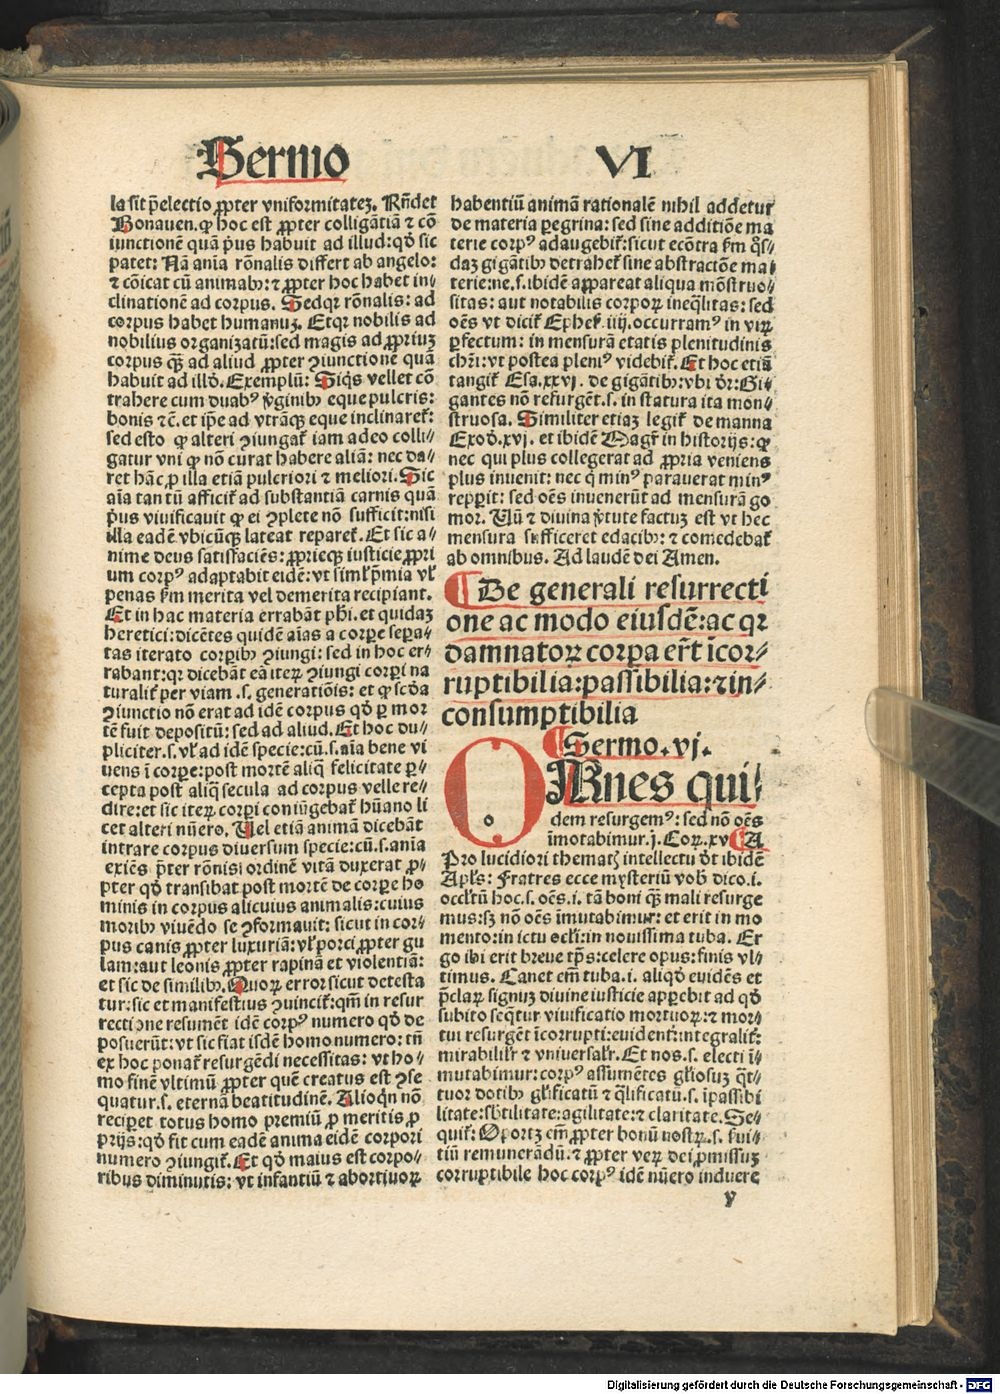 Sermo VI
la sit p̄electio ꝓpter vniformitateꝫ. Rn̄det
Bonauen. ꝙ hoc est ꝓpter colligātiā ⁊ cō
iunctionē quā p̄us habuit ad illud: qd̄ sic
patet: Nā aīa rōnalis differt ab angelo:
⁊ cōicat cū animabꝰ: ⁊ ꝓpter hoc habet in⸗
clinationē ad corpus. Sedqꝛ rōnalis: ad
corpus habet humanuꝫ. Etqꝛ nobilis ad
nobilius organizatū: sed magis ad ꝓpriuꝫ
corpus qꝫ̄ ad aliud ꝓpter ꝯiunctionē quā
habuit ad illd̄. Exemplū: Siq̄s vellet cō
trahere cum duabꝰ v̄ginibꝰ eque pulcris:
bonis ⁊c̄. et ip̄e ad vtrāqꝫ eque inclinaret̄:
sed esto ꝙ alteri ꝯiungat̄ iam adeo colli⸗
gatur vni ꝙ nō curat habere aliā: nec da⸗
ret hāc ꝓ illa etiā pulcriori ⁊ meliori. Sic
aīa tantū afficit̄ ad substantiā carnis quā
p̄us viuificauit ꝙ ei ꝯplete nō sufficit: nisi
illa eadē vbicūqꝫ lateat reparet̄. Et sic a⸗
nime deus satisfaciēs: ꝓprieqꝫ iusticie ꝓpri
um corpꝰ adaptabit eidē: vt siml̄ p̄mia vl̄
penas ẜm merita vel demerita recipiant.
Et in hac materia errabāt ph̄i. et quidaꝫ
heretici: dicētes quidē aīas a corꝑe seꝑa⸗
tas iterato corꝑibꝰ ꝯiungi: sed in hoc er⸗
rabant: qꝛ dicebāt eā iteꝝ ꝯiungi corꝑi na
turalit̄ per viam .s. generatiōis: et ꝙ scd̄a
ꝯiunctio nō erat ad idē corpus qd̄ ꝑ mor
tē fuit depositū: sed ad aliud. Et hoc du⸗
pliciter .s. vl̄ ad idē specie: cū .s. aīa bene vi
uens ī corꝑe: post mortē aliq̄ felicitate ꝑ⸗
cepta post aliq̄ secula ad corpus velle re⸗
dire: et sic iteꝝ corꝑi coniūgebat̄ hūano li
cet alteri nūero. Uel etiā animā dicebāt
intrare corpus diuersum specie: cū .s. anīa
exiēs p̄ter rōnis ordinē vitā duxerat ꝓ⸗
pter qd̄ transibat post mortē de corꝑe ho
minis in corpus alicuius animalis: cuius
moribꝰ viuēdo se ꝯformauit: sicut in cor⸗
pus canis ꝓpter luxuriā: vl̄ porci ꝓpter gu
lam: aut leonis ꝓpter rapinā et violentiā:
et sic de similibꝰ. Quoꝝ error sicut detesta
tur: sic et manifestius ꝯuincit̄: qm̄ in resur
rectione resumēt idē corpꝰ numero qd̄ de
posuerūt: vt sic fiat isdē homo numero: tn̄
ex hoc ponat̄ resurgēdi necessitas: vt ho⸗
mo finē vltimū ꝓpter quē creatus est ꝯse
quatur .s. eternā beatitudinē. Alioqn̄ nō
reciꝑet totus homo premiū ꝓ meritis ꝓ
prijs: qd̄ fit cum eadē anima eidē corpori
numero ꝯiungit̄. Et qd̄ maius est corpo⸗
ribus diminutis: vt infantiū ⁊ abortiuoꝝ
habentiū animā rationalē nihil addetur
de materia ꝑegrina: sed sine additiōe ma
terie corpꝰ adaugebit̄: sicut ecōtra ẜm q̄s⸗
daꝫ gigātibꝰ detrahet̄ sine abstractiōe ma⸗
terie: ne .s. ibidē appareat aliqua mōstruo⸗
sitas: aut notabilis corpoꝝ ineq̄litas: sed
oēs vt dicit̄ Ephes̄. iiij. occurramꝰ in viꝝ
ꝑfectum: in mensurā etatis plenitudinis
chr̄i: vt postea pleniꝰ videbit̄. Et hoc etiā
tangit̄ Esa. xxvj. de gigātibꝰ: vbi dr̄: Gi⸗
gantes nō resurgēt .s. in statura ita mon⸗
struosa. Similiter etiaꝫ legit̄ de manna
Exod̄. xvj. et ibidē Magr̄ in historijs: ꝙ
nec qui plus collegerat ad ꝓpria veniens
plus inuenit: nec q̄ minꝰ parauerat minꝰ
repꝑit: sed oēs inuenerūt ad mensurā go
mor. Un̄ ⁊ diuina v̄tute factuꝫ est vt hec
mensura sufficeret edacibꝰ: ⁊ comedebat̄
ab omnibus. Ad laudē dei Amen.
¶ De generali resurrecti
one ac modo eiusdē: ac qꝛ
damnatoꝝ corꝑa er̄t īcor⸗
ruptibilia: passibilia: ⁊ in⸗
consumptibilia
¶ Sermo. vj.
OMnes qui⸗
dem resurgemꝰ: sed nō oēs
īmotabimur. j. Coꝝ. xv ¶ A
Pro lucidiori thematꝭ intellectu dt̄ ibidē
Apl̄s: Fratres ecce mysteriū vob̄ dico .i.
occl̄tū hoc .s. oēs .i. tā boni qꝫ̄ mali resurge
mus: sꝫ nō oēs īmutabimur: et erit in mo
mento: in ictu ocl̄i: in nouissima tuba. Er
go ibi erit breue tp̄s: celere opus: finis vl⸗
timus. Canet em̄ tuba .i. aliqd̄ euidēs et
p̄claꝝ signuꝫ diuine iusticie apꝑebit ad qd̄
subito seq̄tur viuificatio mortuoꝝ: ⁊ mor⸗
tui resurgēt īcorrupti: euident̄: integralit̄:
mirabilir̄ ⁊ vniuersalr̄. Et nos .s. electi ī⸗
mutabimur: corpꝰ assumētes gl̄iosuꝫ q̄t⸗
tuor dotibꝰ gl̄ificatū ⁊ q̄lificatū .s. īpassibi
litate: sb̄tilitate: agilitate: ⁊ claritate. Se⸗
quit̄: Oportꝫ em̄ ꝓpter bonū nostꝝ .s. ẜui⸗
tiū remunerādū. ⁊ ꝓpter veꝝ dei ꝓmissuꝫ
corruptibile hoc corpꝰ idē nūero induere
y
Digitalisierung gefördert durch die Deutsche Forschungsgemeinschaft - DFG